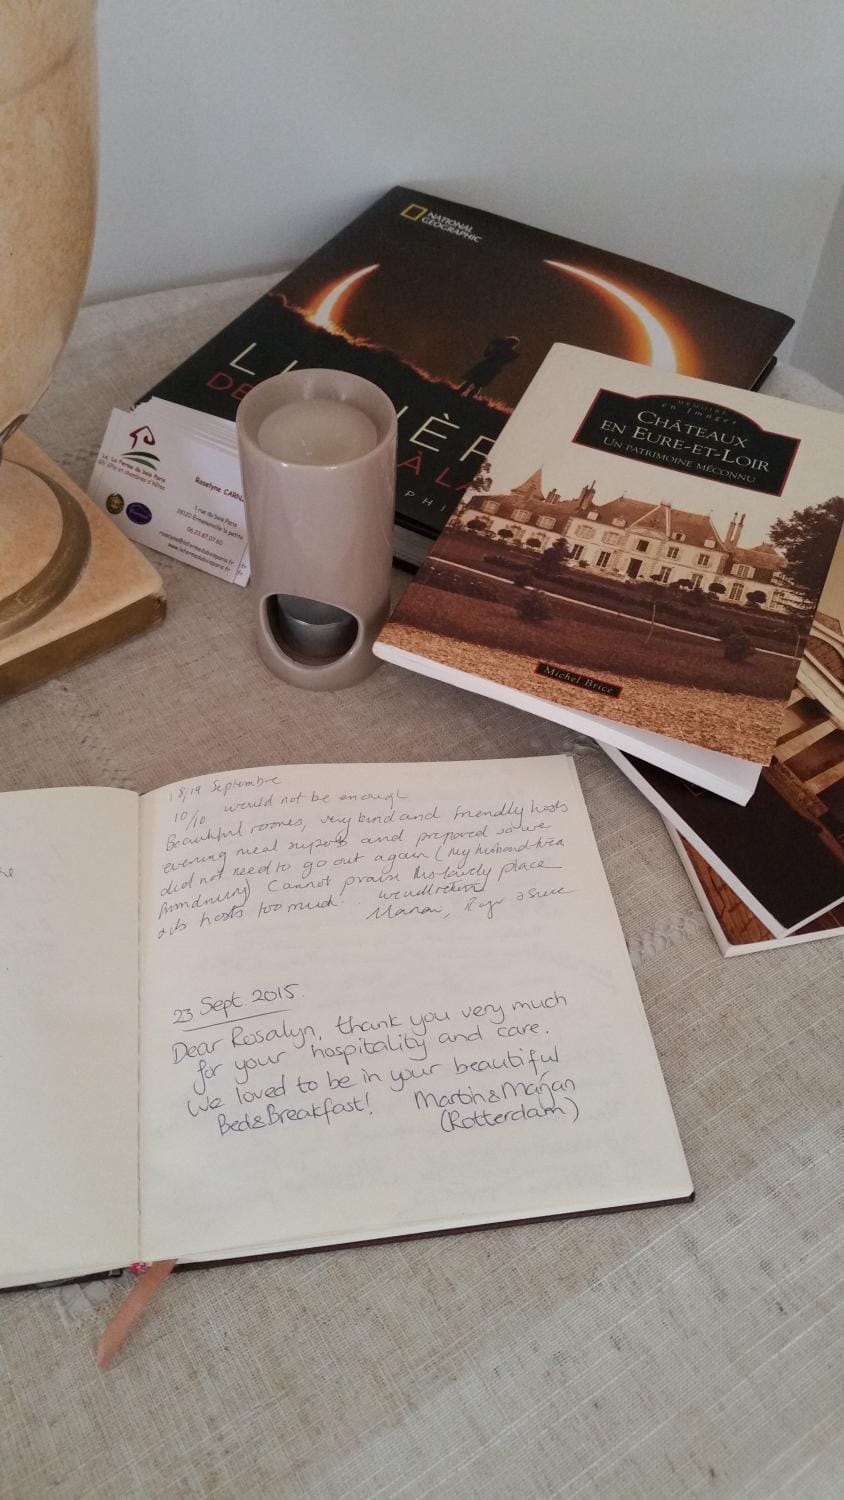 NATIONAL
GEOGRAPHIC
L
DE
ÈR
À LA
PHI
MÉMOIRE
en Images
CHÂTEAUX
EN EURE-ET-LOIR
UN PATRIMOINE MÉCONNU
Michel Brice
La Ferme du bois Paris
et chambres d'hôtes
Roselyne CARN
1 rue du bois Paris
28120 Ermenonville la petite
06 23 87 07 60
roselyne@lafermeduboisparis.fr
www.lafermeduboisparis.fr
18/19 Septembre
10/10 would not be enough
Beautiful rooms, very kind and friendly hosts
evening meal superb and prepared so we
did not need to go out again (my husband
Cannot praise this lovely place
hosts too much. we will return
23 Sept. 2015.
Dear Rosalyn, thank you very much
for your hospitality and care.
We loved to be in your beautiful
Bed&Breakfast! Martin&Marjan
(Rotterdam)